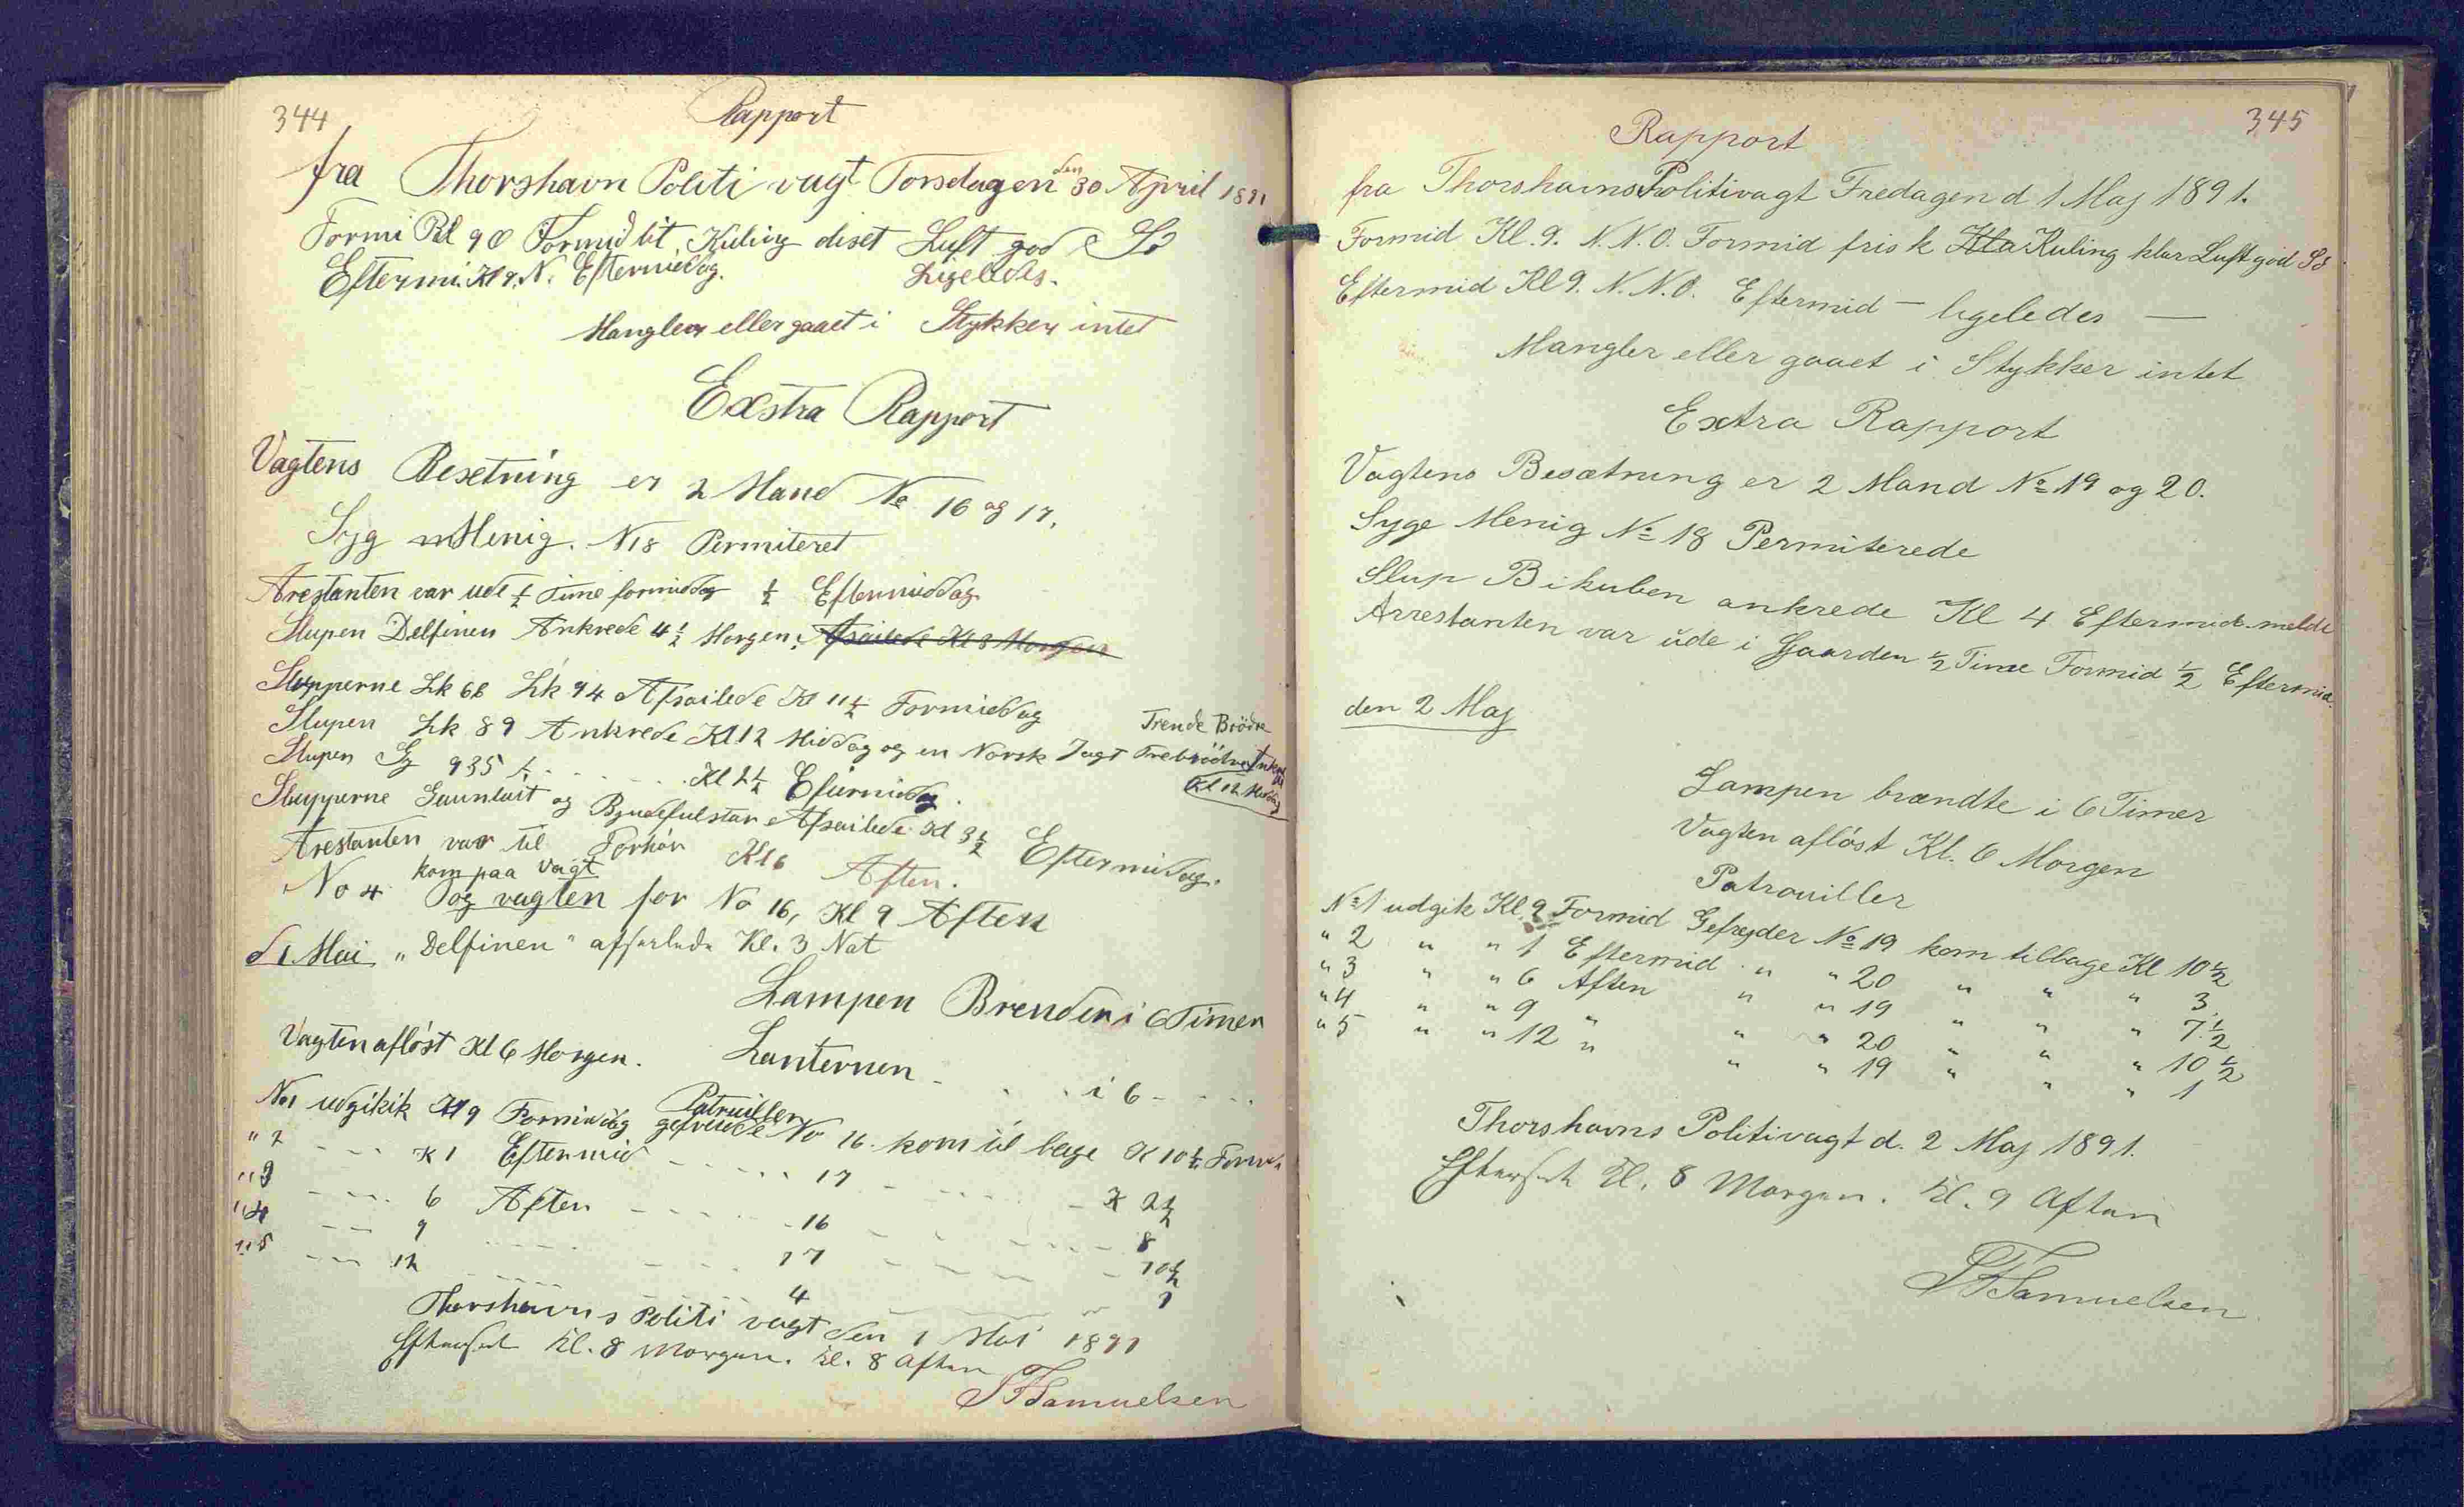 344
Rapport
fra Thorshavn Politi vagt Torsdagen den 30 April 1891
Formi Kl 9 O Formid lit. Kuling diset Luft god Sø
Eftermi. Kl 9. N. Eftermiddag. Ligeledes.
Mangler eller gaaet i Stykker intet
Exstra Rapport
Vagtens Besetning er 2 Mand No 16 og 17.
Syg Menig. N 18 Permiteret
Arestanten var ude ½ Time formiddag ½ Eftermiddag
Slupen Delfinen Ankrede 4½ Morgen; Afsailede Kl 3 Morgen
Slupperne Lk 68 Lk 94 Afsailede Kl 11½ Formiddag
Slupen Lk 89 Ankrede Kl 12 Middag og en Norsk Jagt Trebrödre Ankrede
Trende Brödre
Kl 12 Middag
Slupen Gy 935 A. - - - - - Kl 2½ Efermidag.
Slupperne og Afsailede Kl 3½ Eftermidag.
Arestanten var til Forhör Kl 6 Aften.
No 4 kom paa Vagt og vagten for No 16, Kl 9 Aften
d 1 Mai „Delfinen“ afseilede Kl. 3 Nat
Lampen Brender i 6 Timer
Vagten aflöst Kl 6 Morgen. Lanternen - - - i 6 - - -
Patruiller
No 1 udgikik Kl 9 Formidag No 16 kom til bage K 10½ Form
" 2 - - - K 1 Eftermid - - - - 17 - - - - K 2½
" 3 - - - 6 Aften - - - - 16 - - - - 8
" 4 - - - 9 - - - - 17 - - - - 10½
" 5 - - - 12 - - - - 4 - - - - 1
Thorshavns Politi vagt den 1 Mai 1891
Efterseet Kl. 8 Morgen. Kl. 8 Aften
Samuelsen
345
Rapport
fra Thorshavns Politivagt Fredagen d 1 Maj 1891.
Formid Kl. 9. N. N. O. Formid frisk Kla Kuling klar Luft god Sø
Eftermid Kl 9. N. N. O. Eftermid — ligeledes —
Mangler eller gaaet i Stykker intet
Extra Rapport
Vagtens Besætning er 2 Mand No 19 og 20.
Syge Menig No 18 Permiterede
Slup Bikuben ankrede Kl 4 Eftermid. meldt
Arrestanten var ude i Gaarden ½ Time Formid ½ Eftermid.
den 2 Maj
Lampen brændte i 6 Timer
Vagten aflöst Kl. 6 Morgen
Patrouiller
No 1 udgik Kl. 9 Formid Gefrejder No 19 kom tilbage Kl 10½
" 2 " " 1 Eftermid " " 20 " " " 3.
" 3 " " 6 Aften " " 19 " " " 7½
" 4 " " 9 " " " 20 " " " 10½
" 5 " " 12 " " " 19 " " " 1
Thorshavns Politivagt d. 2 Maj 1891.
Efterseet Kl. 8 Morgen. Kl. 9 Aften
Samuelsen